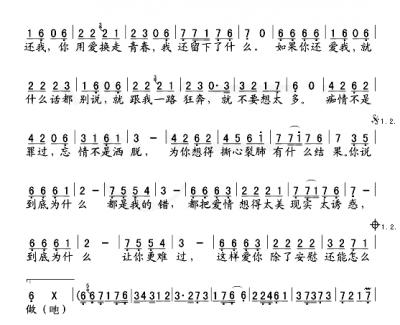 1 6 0 6 | 2 2 2 1 | 2 3 0 6 | 7 7 1 7 6 | 7 0 | 1 6 0 6 | 1 6 0 6 |
还我,你 用爱换走 青春,我 还留下了什 么。 如果你还 爱我,就
2 2 2 3 | 1 6 0 6 | 2 2 2 1 | 2 3 0 · 3 | 3 2 1 7 | 6 0 | 4 2 6 2 |
什么话都 别说,就 跟我一路 狂奔,就 不要想太 多。 痴情不是
𝄋1.2.
4 2 0 6 | 3 1 6 1 | 3 - | 4 2 6 2 | 4 5 6 i | 7 7 i 7 6 | 7 3 5 |
罪过,忘 情不是洒 脱, 为你想得 撕心裂肺 有什么结 果。你说
6 6 6 1 | 2 - | 7 5 5 4 | 3 - | 6 6 6 3 | 2 2 2 1 | 7 7 1 7 6 | 7 3 5 |
到底为什 么 都是我的 错, 都把爱情 想得太美 现实 太诱惑,
𝄌1.2.
6 6 6 1 | 2 - | 7 5 5 4 | 3 - | 6 6 6 3 | 2 2 2 1 | 3 2 7 1 |
到底为什 么 让你更难 过, 这样爱你 除了安慰 还能怎么
1.
6 X | (6 6 7 1 7 6 | 3 4 3 1 2 | 3 · 2 7 3 | 1 7 6 | 2 2 4 6 1 | 3 7 3 7 3 | 7 2 1 7)
做(吔)